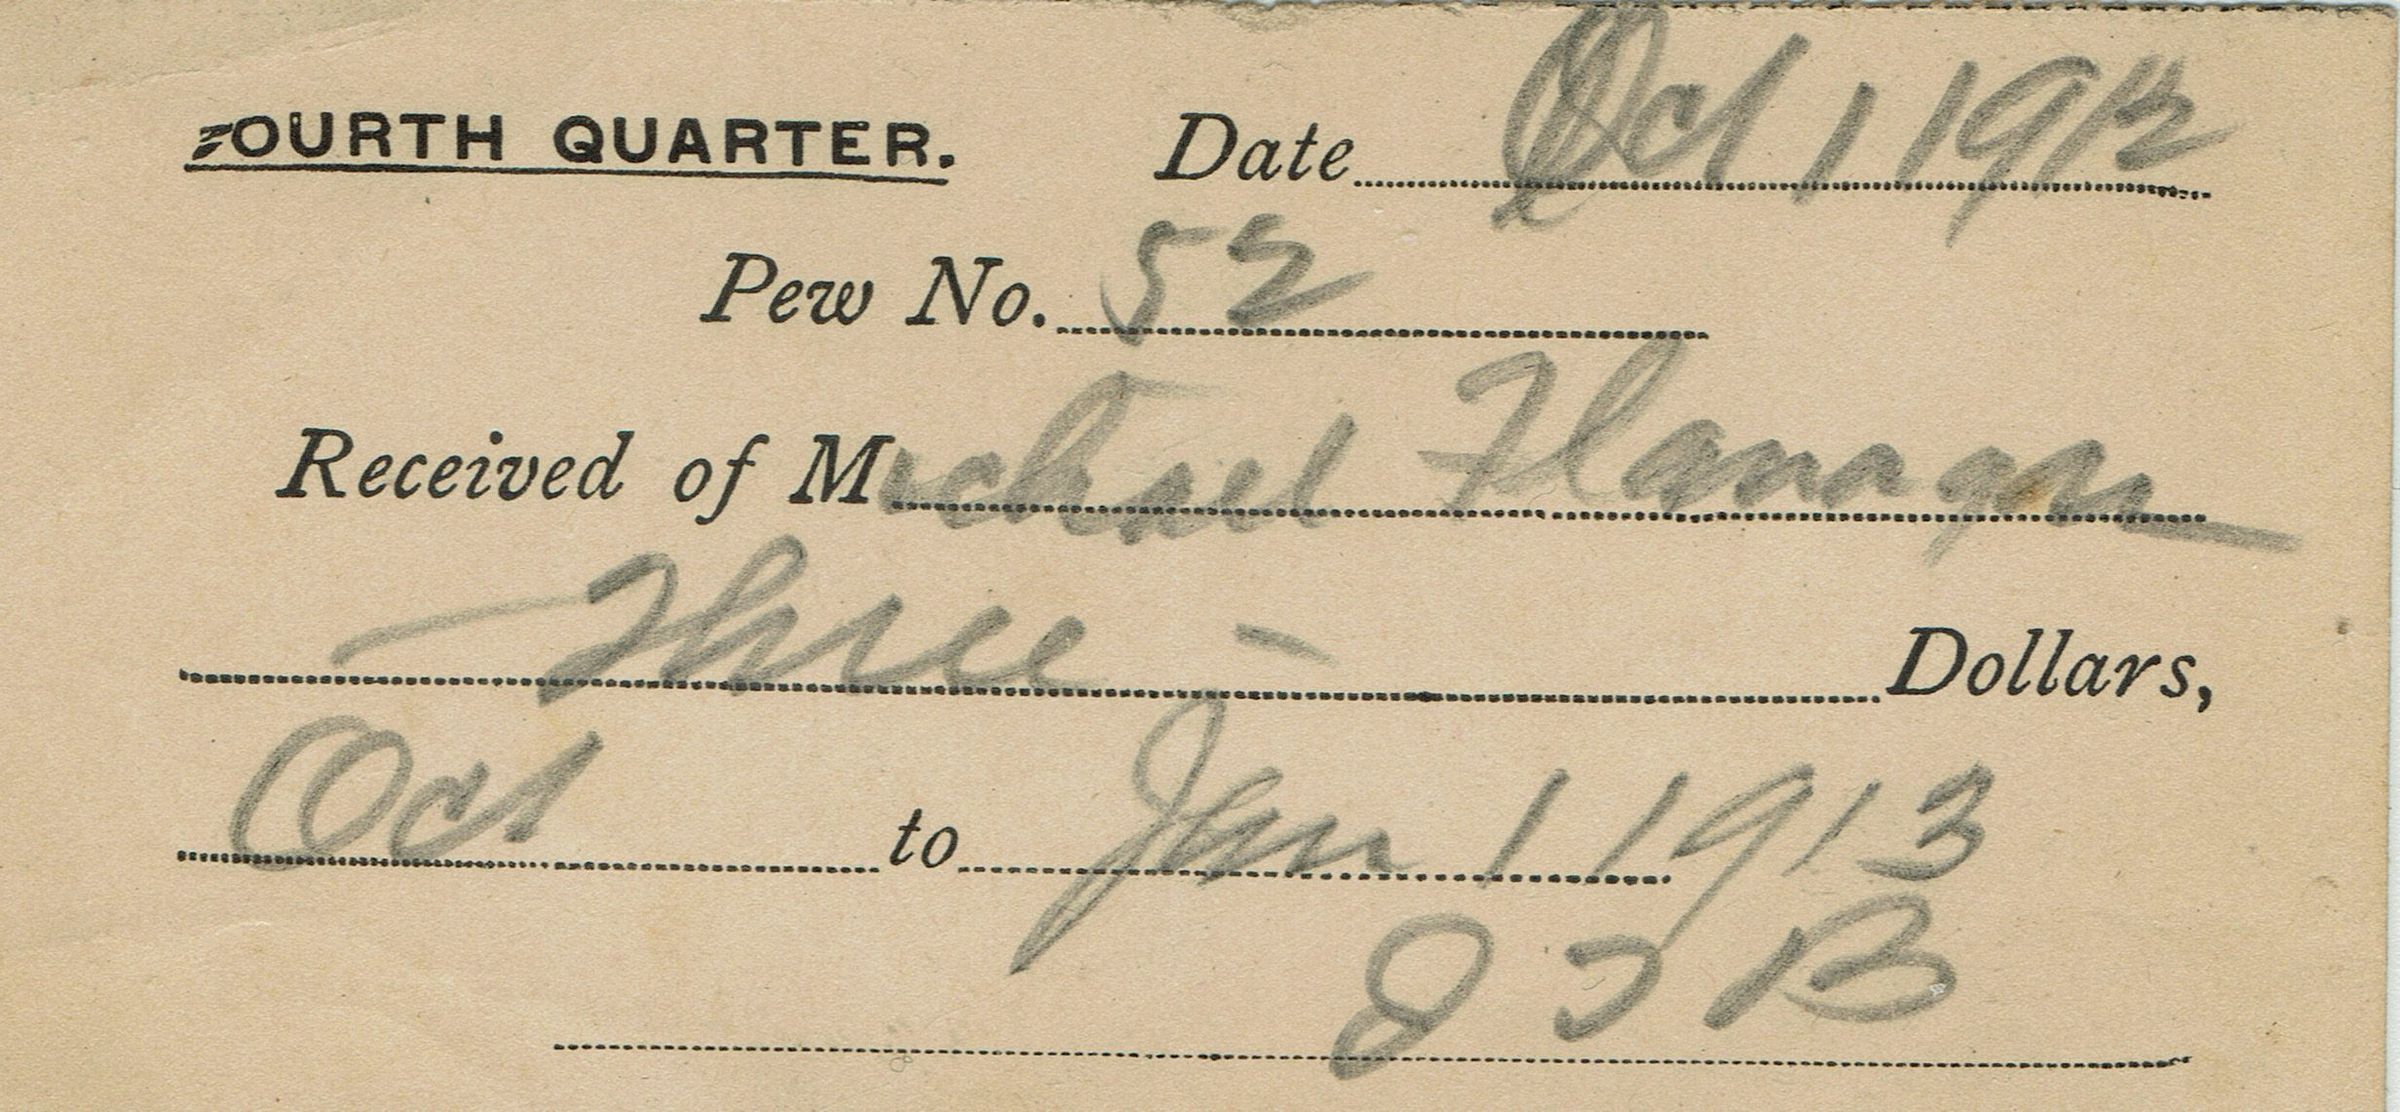 FOURTH QUARTER. Date Oct 1 1912
Pew No. 52
Received of Michael Flanagan
Three - Dollars,
Oct to Jan 1 1913
J J B